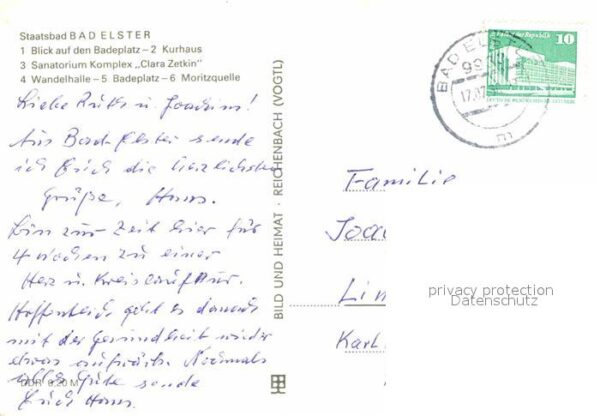 Staatsbad BAD ELSTER
1 Blick auf den Badeplatz – 2 Kurhaus
3 Sanatorium Komplex „Clara Zetkin"
4 Wandelhalle – 5 Badeplatz – 6 Moritzquelle
Liebe Ruth u. Joachim!
Aus Bad-Elster sende
ich Euch die herzlichsten
Grüße, Hans.
Bin zur Zeit hier für
4 Wochen zu einer
Herz u. Kreislaufkur.
Hoffentlich geht es danach
mit der Gesundheit wieder
etwas aufwärts. Nochmals
alles Gute sende
Euch Hans.
DDR 0,20 M
BILD UND HEIMAT · REICHENBACH (VOGTL)
BAD ELST
99
17.
m
10
Familie
Joa
Lin
Karl
privacy protection
Datenschutz